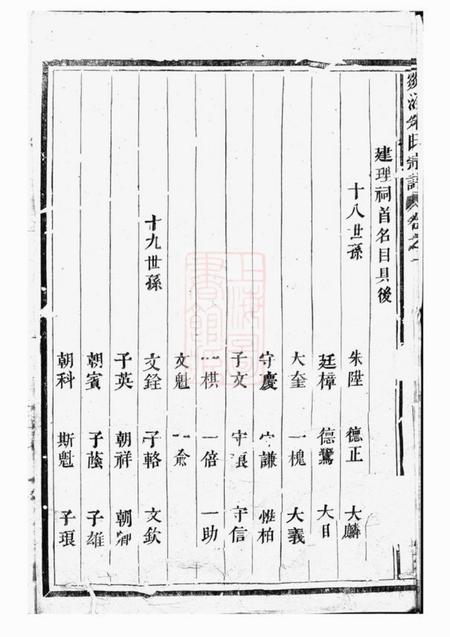 朱氏宗譜 卷之一
建理祠首名目具後
十八世孫
朱陞 德正 大麟
廷樟 德鷟 大日
大奎 一槐 大義
守慶 守謙 惟柏
子文 守良 守信
一棋 一倍 一助
文魁
十九世孫
文銓 子輅 文欽
子英 朝祥 朝
朝賓 子蔭 子雄
朝科 斯魁 子琅
上海圖書館